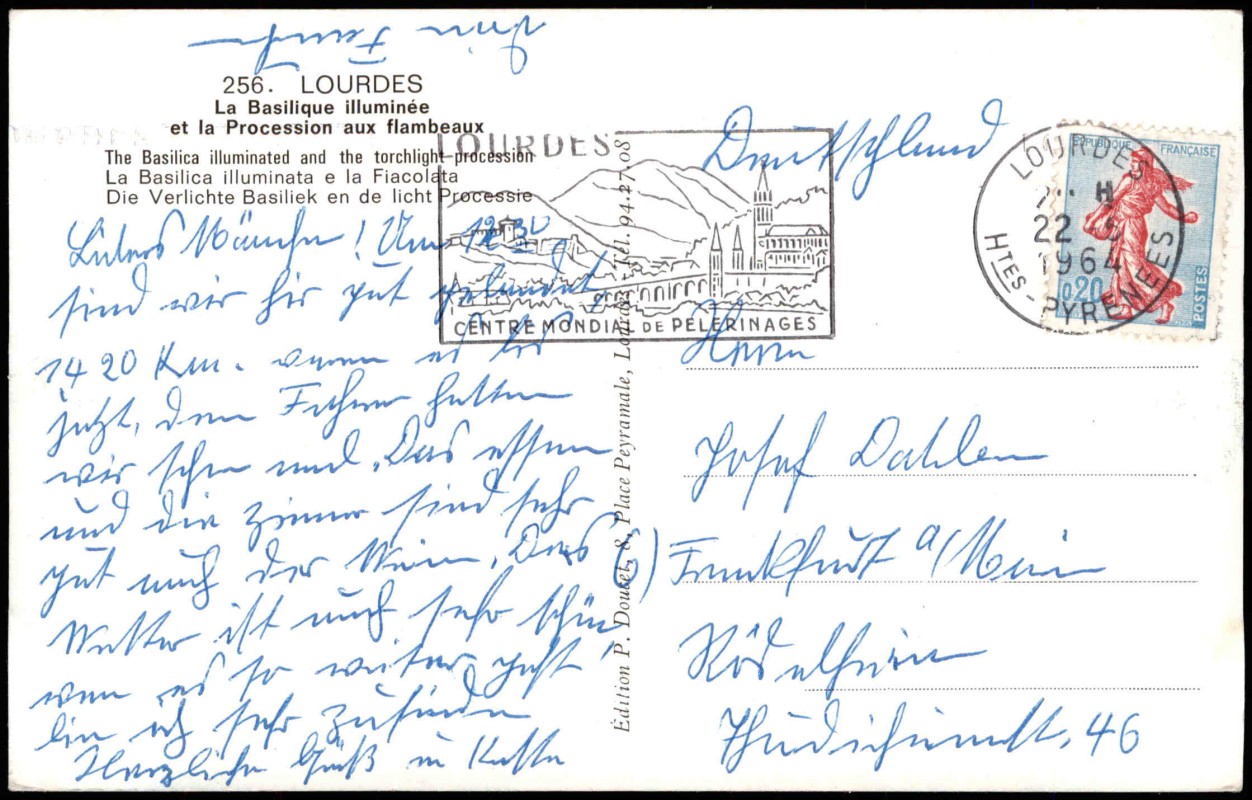 256. LOURDES
La Basilique illuminée
et la Procession aux flambeaux
The Basilica illuminated and the torchlight procession
La Basilica illuminata e la Fiacolata
Die Verlichte Basiliek en de licht Processie
Liebes Mäuschen! Um 12 30
sind wir hir gut gelandet,
1420 Km. waren es bis
jetzt, dem Fahrer hatten
wir schon mal. Das essen
und die Zimmer sind sehr
gut auch der Wein, Das
Wetter ist auch sehr schön
wen es so weiter geht
bin ich sehr zufrieden
Herzliche Grüß u Küsse
Dein
LOURDES
CENTRE MONDIAL DE PÈLERINAGES
Édition P. Doucet, 8, Place Peyramale, Lourdes - Tél. 94.27.08
LOURDES
H
22
1964
HTES-PYRÉNÉES
RÉPUBLIQUE FRANÇAISE
0,20
POSTES
Deutschland
Herrn
Josef Dahlem
(6) Frankfurt a/Main
Rödelheim
Thudichumstr. 46